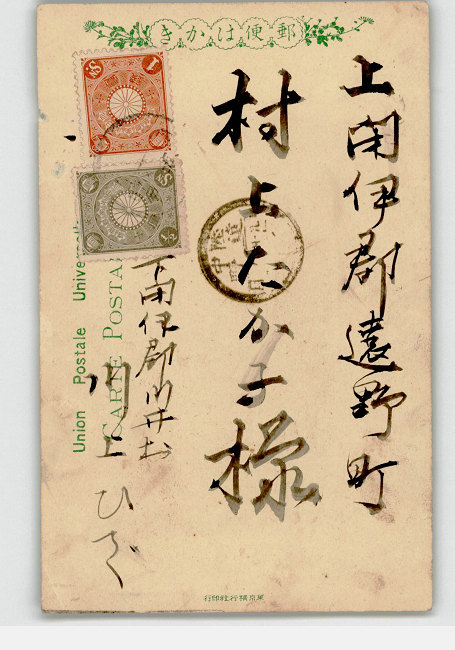 郵便はかき
上閉伊郡遠野町
村上たか子様
下閉伊郡川井村
川上
ひで
Union Postale Universelle
CARTE POSTALE